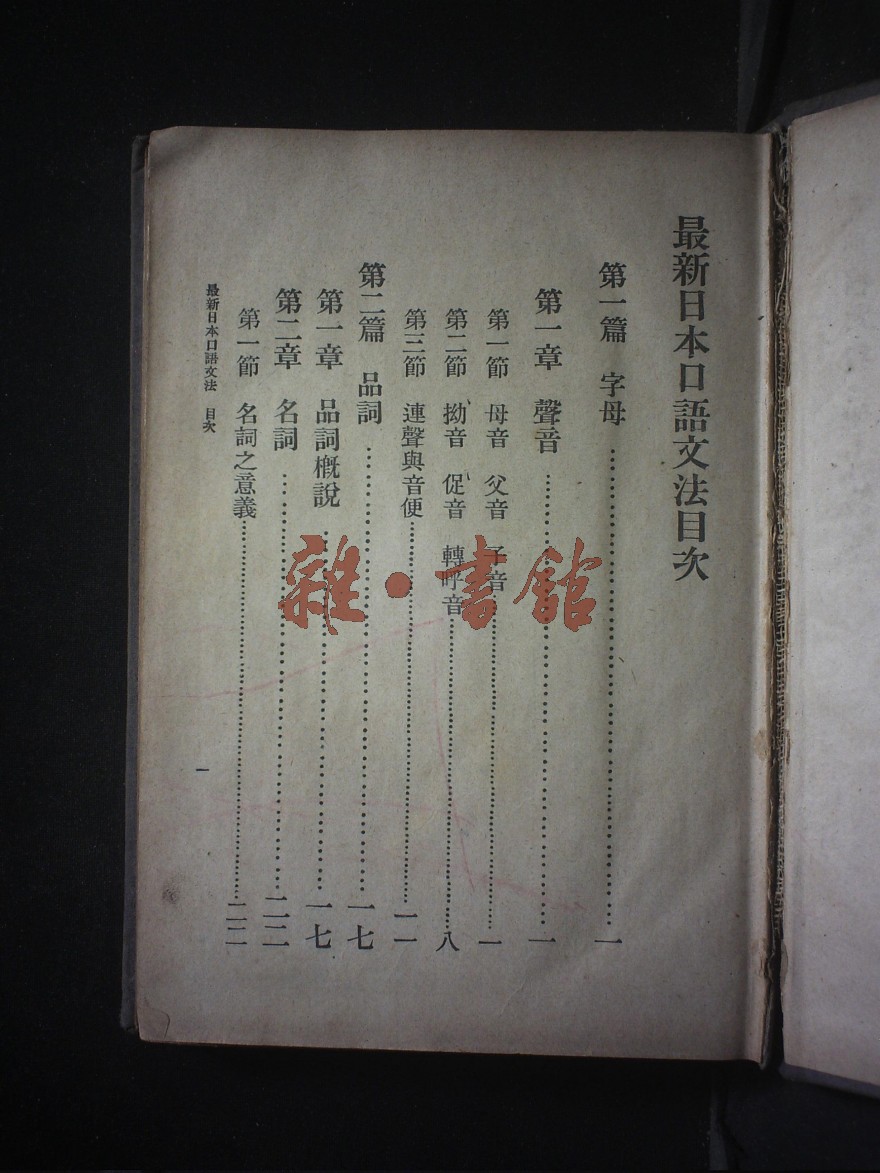 最新日本口語文法目次
第一篇 字母……一
第一章 聲音……一
第一節 母音 父音 子音……一
第二節 拗音 促音 轉呼音……八
第三節 連聲與音便……一一
第二篇 品詞……一七
第一章 品詞概說……一七
第二章 名詞……二二
第一節 名詞之意義……二二
最新日本口語文法 目次
一
雜·書館